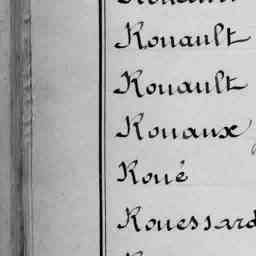 Rouault
Rouault
Rouaux
Roué
Rouessard